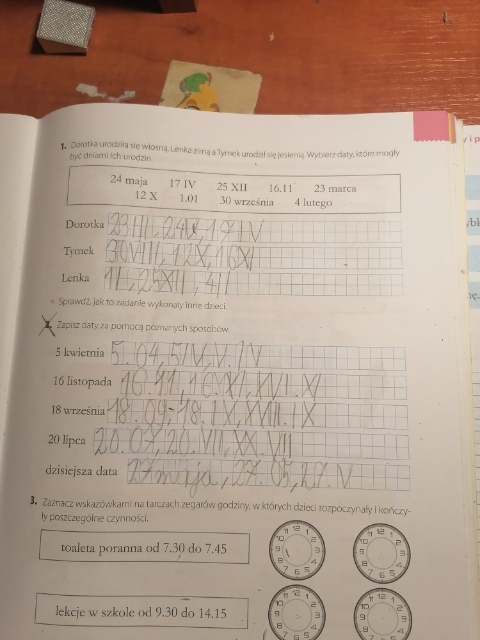 1. Dorotka urodziła się wiosną, Lenka zimą a Tymek urodził się jesienią. Wybierz daty, które mogły
być dniami ich urodzin.
24 maja 17 IV 25 XII 16.11 23 marca
12 X 1.01 30 września 4 lutego
Dorotka 23 III, 24 V, 17 IV
Tymek 30 VIII, 12 X, 16 XI
Lenka 1 I, 25 XII, 4 II
• Sprawdź, jak to zadanie wykonały inne dzieci.
2. Zapisz daty za pomocą poznanych sposobów.
5 kwietnia 5.04, 5 IV, V.IV
16 listopada 16.11, 16.XI, XVI.XI
18 września 18.09, 18.IX, XVIII.IX
20 lipca 20.07, 20.VII, XX.VII
dzisiejsza data 27 maja, 27.05, 27.V
3. Zaznacz wskazówkami na tarczach zegarów godziny, w których dzieci rozpoczynały i kończy-
ły poszczególne czynności.
toaleta poranna od 7.30 do 7.45
lekcje w szkole od 9.30 do 14.15